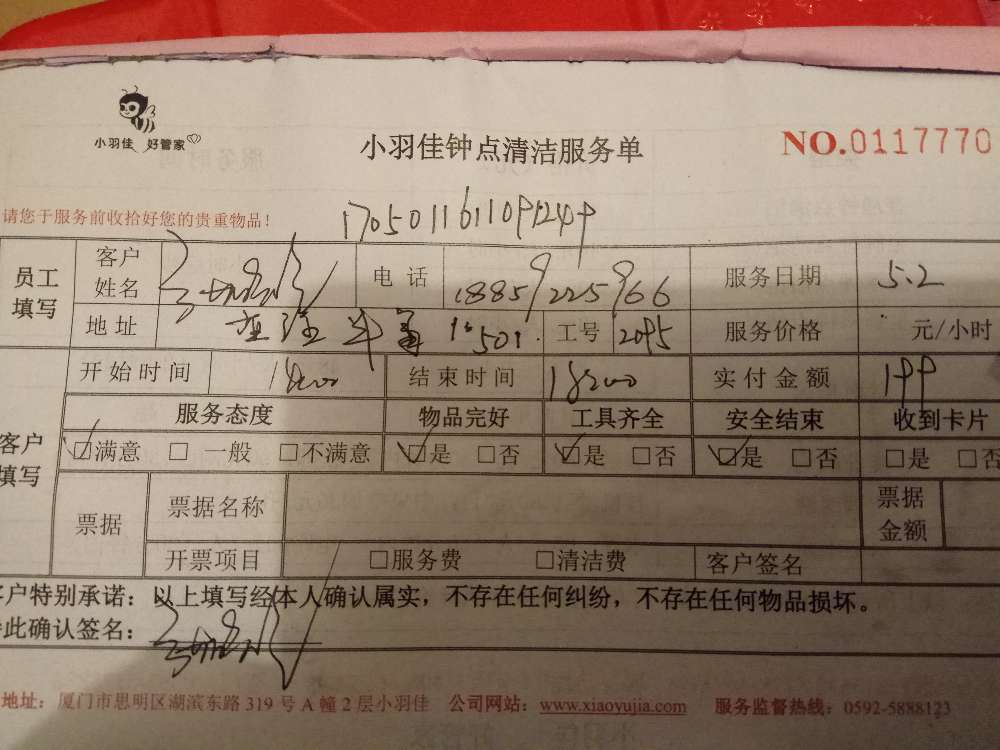 小羽佳 好管家
小羽佳钟点清洁服务单
NO.0117770
请您于服务前收拾好您的贵重物品！
员工填写 客户姓名 电话 服务日期 5.2
地址 501 工号 2095 服务价格 元/小时
客户填写 开始时间 结束时间 实付金额 199
服务态度 物品完好 工具齐全 安全结束 收到卡片
☑满意 □一般 □不满意 ☑是 □否 ☑是 □否 ☑是 □否 □是 □否
票据 票据名称 票据金额
开票项目 □服务费 □清洁费 客户签名
客户特别承诺：以上填写经本人确认属实，不存在任何纠纷，不存在任何物品损坏。
此确认签名：
地址：厦门市思明区湖滨东路319号A幢2层小羽佳 公司网站：www.xiaoyujia.com 服务监督热线：0592-5888123